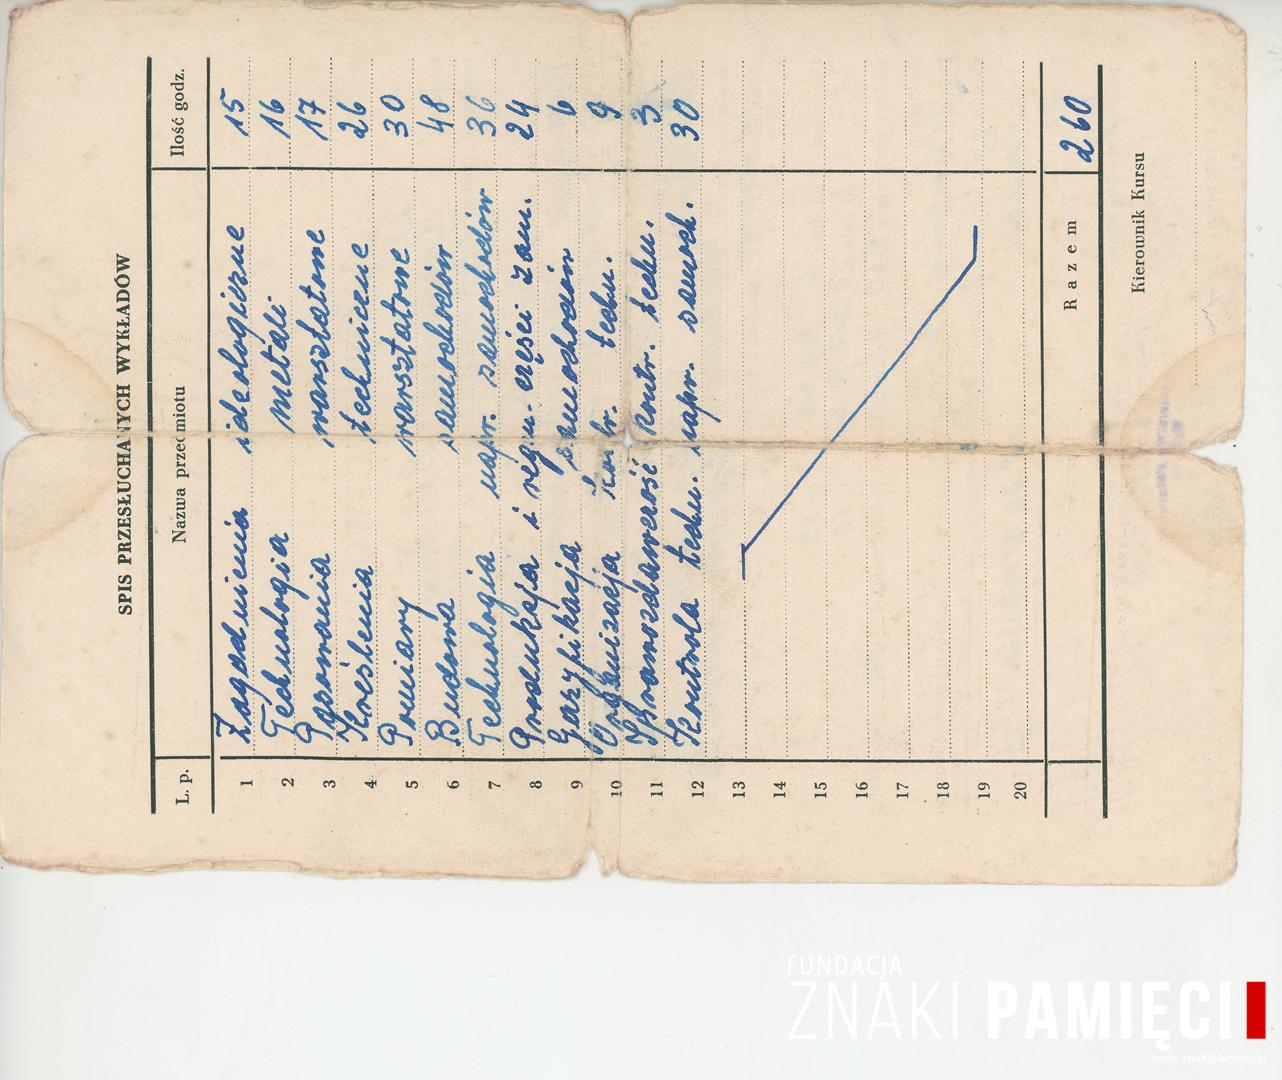 SPIS PRZESŁUCHANYCH WYKŁADÓW
L. p. Nazwa przedmiotu Ilość godz.
1 Zagadnienia ideologiczne 15
2 Technologia metali 16
3 Pasowania warsztatowe 17
4 Kreślenia techniczne 26
5 Pomiary warsztatowe 30
6 Budowa samochodów 48
7 Technologia napr. samochodów 36
8 Produkcja i reg. części zam. 24
9 Gazyfikacja samochodów 6
10 Organizacja kontr. techn. 9
11 Sprawozdawczość kontr. techn. 3
12 Kontrola techn. napr. samoch. 30
13
14
15
16
17
18
19
20
Razem 260
Kierownik Kursu
FUNDACJA
ZNAKI PAMIĘCI
www.znakipamieci.pl